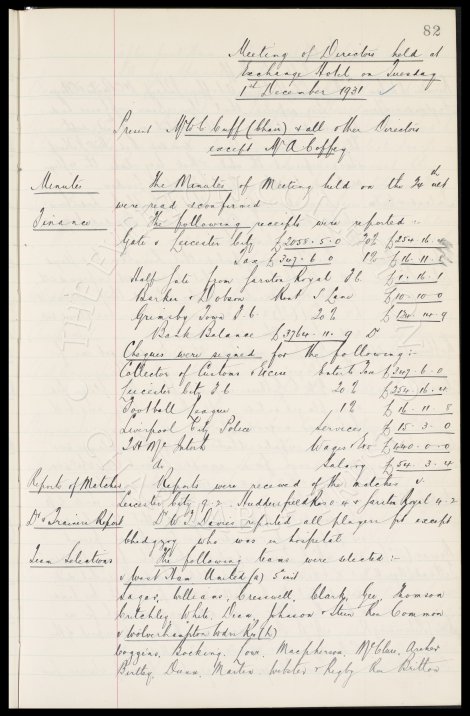 82
Meeting of Directors held at
Exchange Hotel on Tuesday
1st December 1931
Present Mr W C Cuff (Chair) & all other Directors
except Mr A Coffey
Minutes The Minutes of Meeting held on the 24th ult
were read & confirmed
Finance The following receipts were reported :-
Gate v Leicester City £2058.5.0 20% £254.16.4
Tax £347.6.0 1% £16.11.8
Half Gate from Jarston Royal F.C.
Barker & Dobson Rent £10.10.0
Grimsby Town F.C. 20%
Bank Balance £3764.11.9 Dr
Cheques were signed for the following :-
Collector of Customs & Excise Ents Tax £347.6.0
Leicester City F.C. 20% £254.16.4
Football League 1% £16.11.8
Liverpool City Police Services £15.3.0
T. H. McIntosh Wages £440.0.0
do Salary £54.3.4
Reports of Matches Reports were received of the matches v.
Leicester City 9.2. Huddersfield Res 4 & Jarston Royal 4.2
Dr & Trainers Report Dr W. J. Davies reported all players fit except
Chedgzoy who was in hospital
Team Selections The following teams were selected :-
v West Ham United (a) 5th inst
Sagar, Williams, Cresswell, Clark, Gee, Thomson
Critchley, White, Dean, Johnson & Stein Res Common
v Wolverhampton Wdrs Res (h)
Coggins, Bocking, Lowe, Macpherson, McClure, Archer
Birtley, Dunn, Martin, Webster & Rigby Res Britton